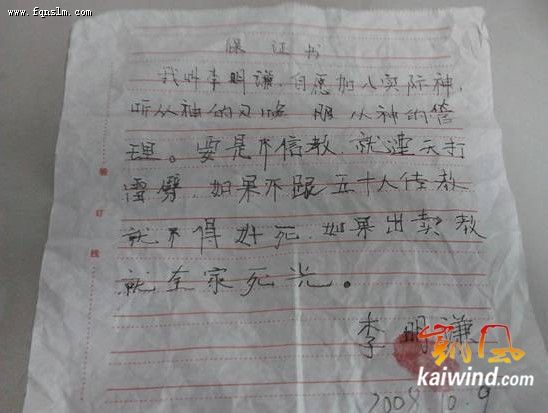 www.fqnslm.com
保证书
我叫李明谦,自愿加入实际神,
听从神的 服从神的管
理。要是不信教 就連天打
雷劈,如果不跟五十人传教
就不得好死.如果出卖教
就全家死光。
装订线
李明谦
凯风
kaiwind.com
2008 9